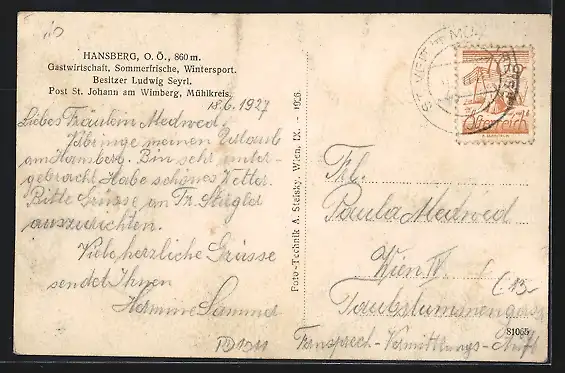 HANSBERG, O. Ö., 860 m.
Gastwirtschaft, Sommerfrische, Wintersport.
Besitzer Ludwig Seyrl.
Post St. Johann am Wimberg, Mühlkreis.
18.6.1927
Liebes Fräulein Medwed.
Verbringe meinen Urlaub
am Hansberg. Bin sehr unter-
gebracht. Habe schönes Wetter.
Bitte Grüsse an Fr. Stiegler
auszurichten.
Viele herzliche Grüsse
sendet Ihnen
Hermine
Foto-Technik A. Stefsky, Wien, IX. - 1926.
Österreich
Frl.
Paula Medwed
Wien IV.
Taubstummengasse
Fernsprech-Vermittlungs-Amt
81065